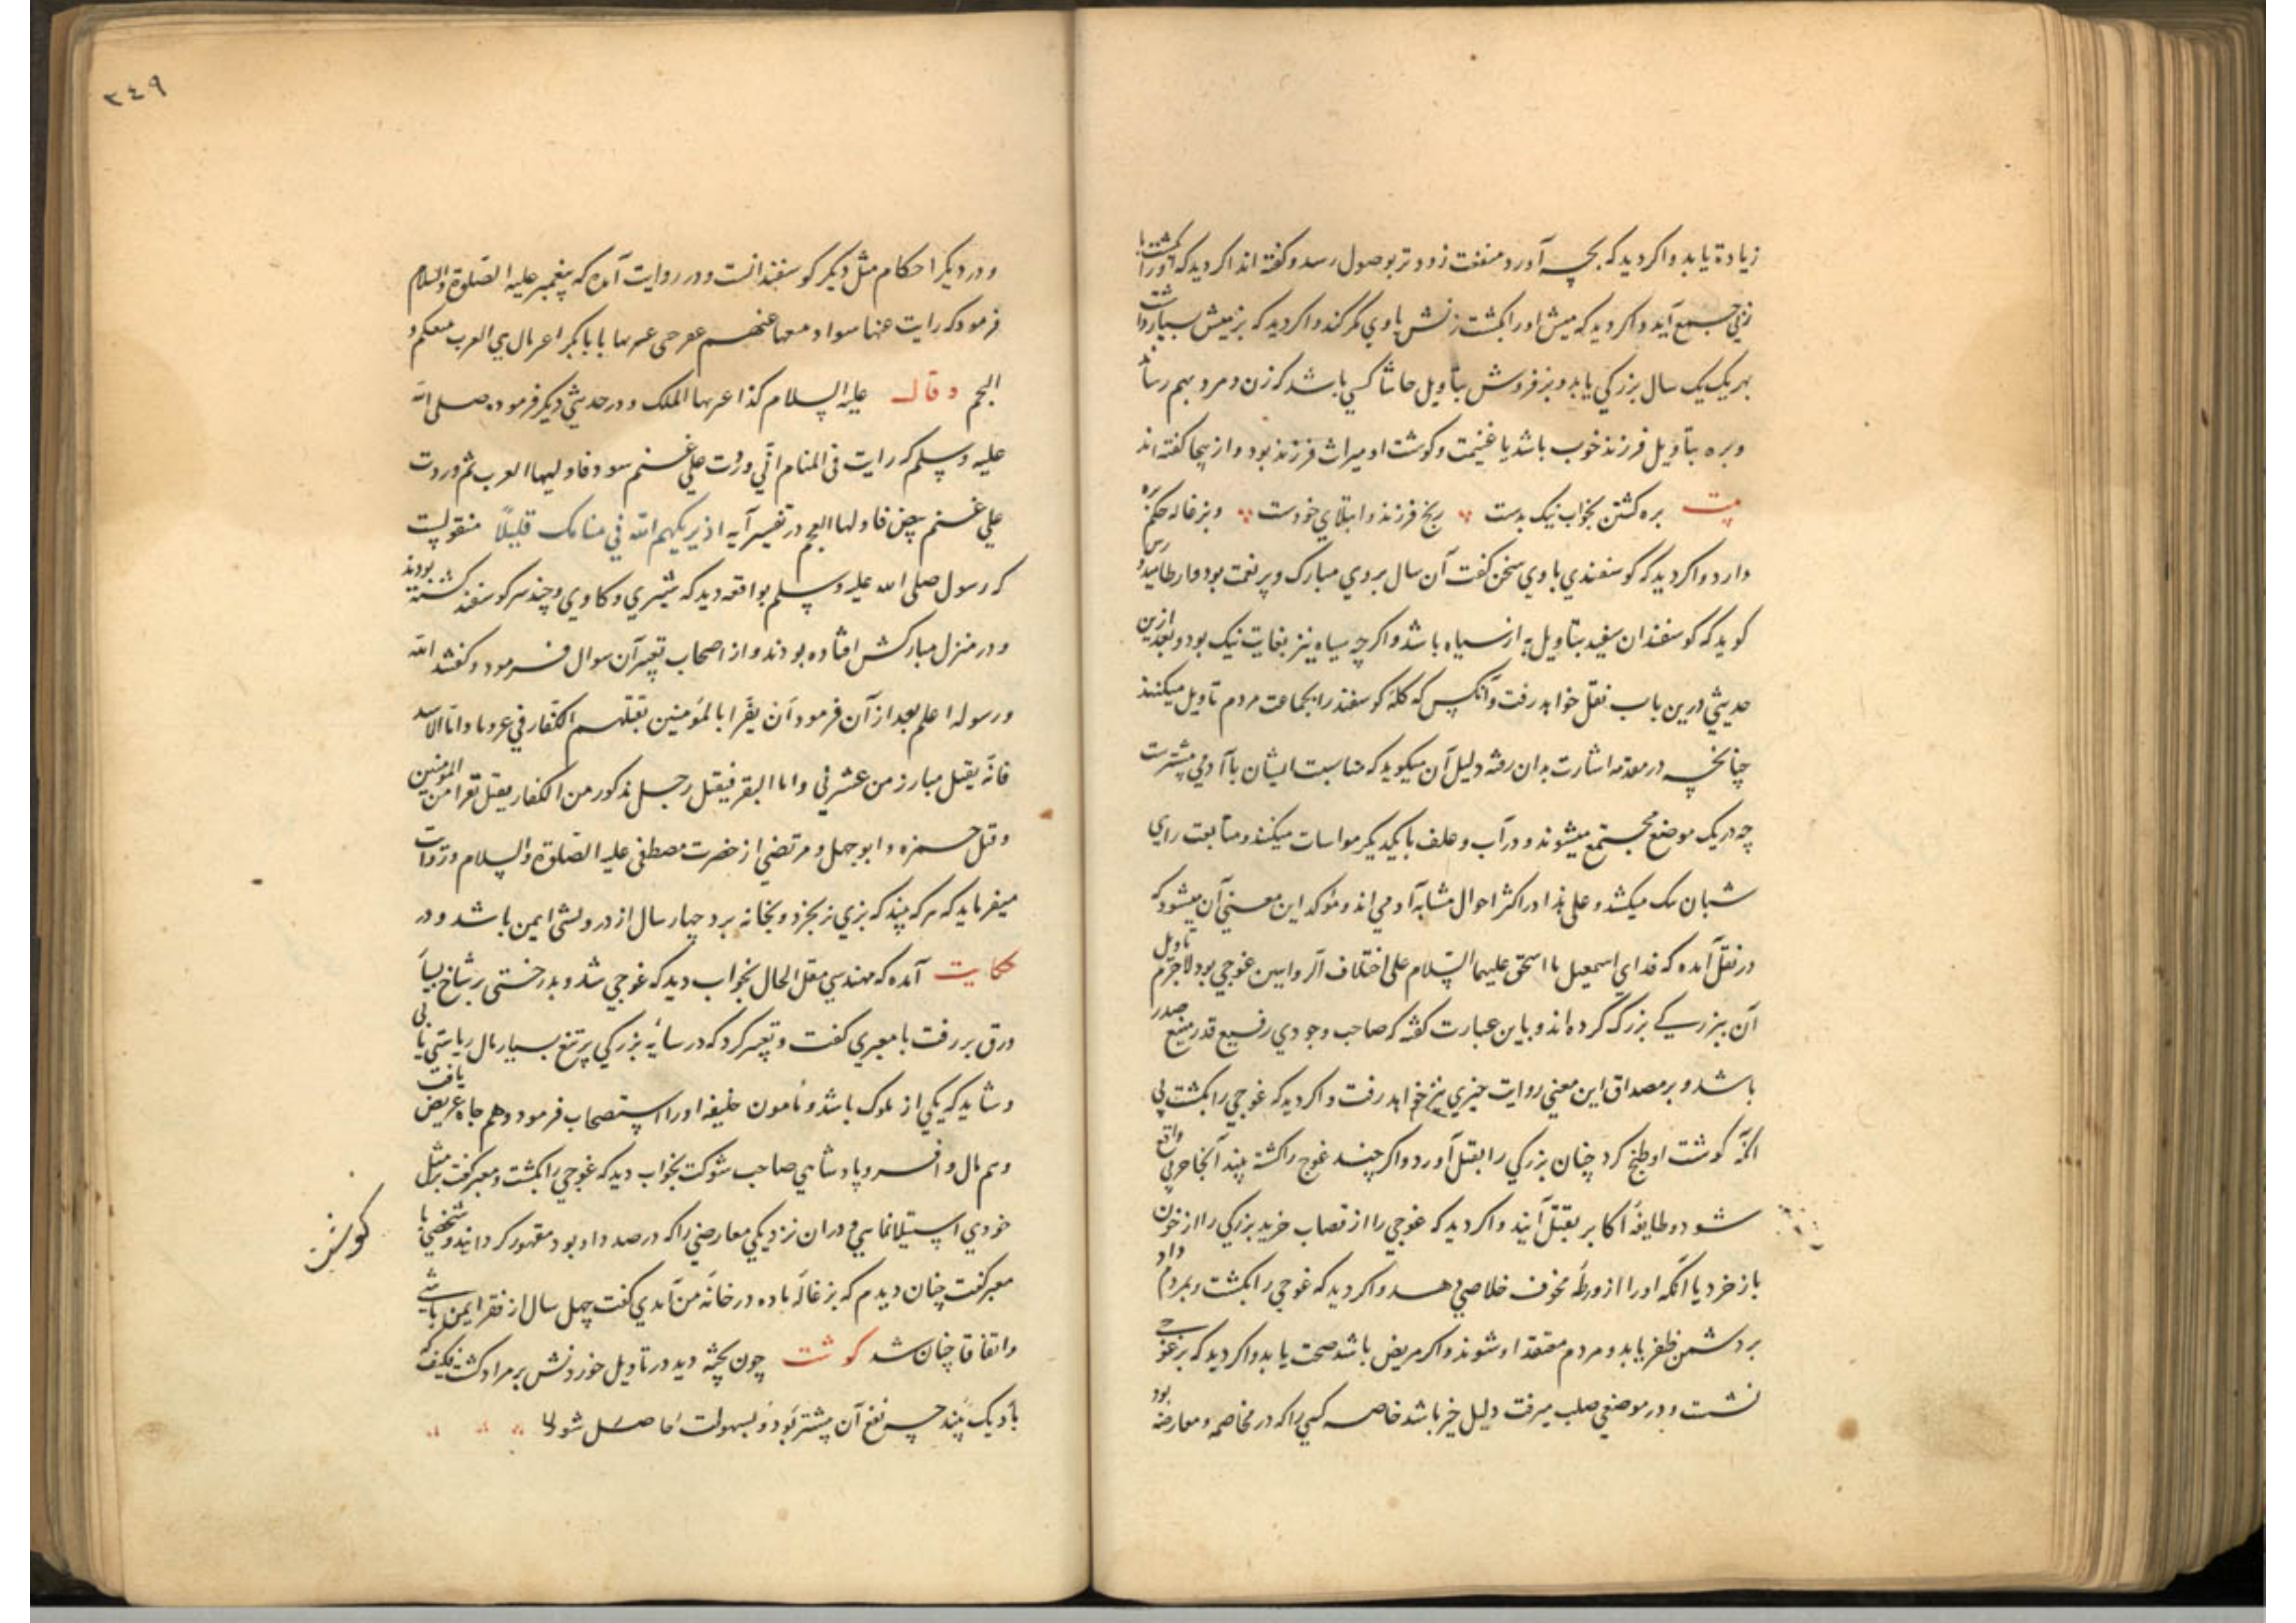 زیادة یابد و اکر دید که بچه آورد منفعت زودتر بوصول رسد و کفته اند اکر دید که اورا بکشت با
زنی جمع آید و اکر دید که میش اورا بکشت زنش با وی مکر کند و اکر دید که بز میش بسیار داشت
بهر یک یک سال بزرکی یابد و بز فروش بتاویل حاشا کسی باشد که زن و مرد بهم رساند
و بره بتاویل فرزند خوب باشد یا غنیمت و کوشت او میراث فرزند بود و از ینجا کفته اند
بیت بره کشتن بخواب نیک بدست رنج فرزند و ابتلای خودست و بزغاله حکم بره
دارد و اکر دید که کوسفندی با وی سخن کفت آن سال بر وی مبارک و پر نعمت بود و ارطامیدورس
کوید که کوسفندان سفید بتاویل به از سیاه باشد و اکر چه سیاه نیز بغایت نیک بود و بعد ازین
حدیثی درین باب نقل خواهد رفت و آنکس که کله کوسفند را بجماعت مردم تاویل میکنند
چنانچه در مقدمه اشارت بدان رفته دلیل آن میکوید که مناسبت ایشان با آدمی بیشترست
چه در یک موضع مجتمع میشوند و در آب و علف با یکدیکر مواسات میکنند و متابعت رای
شبان یک میکشد و علی هذا در اکثر احوال مشابه آدمی اند و موکد این معنی آن میشود که
در نقل آمده که فدای اسمعیل یا اسحق علیهما السلام علی اختلاف الروایتین غوجی بود لاجرم تاویل
آن ببزرکی بزرک کرده اند و باین عبارت کفته که صاحب وجودی رفیع قدر منیع صدر
باشد و بر مصداق این معنی روایت خبری نیز خواهد رفت و اکر دید که غوجی را بکشت بی
آنکه کوشت او طبخ کرد چنان بزرکی را بقتل آورد و اکر چند غوج را کشته بیند آنجا حربی واقع
شود و طایفه اکابر بقتل آیند و اکر دید که غوجی را از قصاب خرید بزرکی را از خون
باز خرد یا آنکه اورا از ورطه مخوف خلاصی دهد و اکر دید که غوجی را بکشت و بمردم داد
بر دشمن ظفر یابد و مردم معتقد او شوند و اکر مریض باشد صحت یابد و اکر دید که بر غوجی
نشست و در موضعی صلب میرفت دلیل خیر باشد خاصه کسی را که در مخاصمه و معارضه بود
٣٤٩
و در دیکر احکام مثل دیکر کوسفندانست و در روایت آمده که پیغمبر علیه الصلوة والسلام
فرمود که رایت غنما سوادا معها غنم یا ابا بکر العرب
العجم و قال علیه السلام کذا عبرها الملک و در حدیثی دیکر فرموده صلی الله
علیه و سلم که رایت فی المنام انی وردت علی غنم سود فاولیها العرب ثم وردت
علی غنم بیض فاولها العجم در تفسیر آیه اذ یریکهم الله فی منامک قلیلًا منقولست
که رسول صلی الله علیه و سلم بواقعه دید که شیری و کاوی و چند سر کوسفند کشته بودند
و در منزل مبارکش افتاده بودند و از اصحاب تعبیر آن سوال فرمود و کفتند الله
و رسوله اعلم بعد از آن فرمود ان بقرا بالمؤمنین یقتلهم الکفار فی و اما الاسد
فانه یقتل مبارز من و اما البقر فیقتل رجل مذکور من الکفار یقتل نفرا من المؤمنین
و قتل حمزه و ابوجهل و مرتضی از حضرت مصطفی علیه الصلوة والسلام روایت
میفرماید که هر که بیند که بزی بخرد و بخانه برد چهار سال از درویشی ایمن باشد و در
حکایت آمده که مهندسی مقل الحال بخواب دید که غوجی شد و بدرختی پر شاخ بسیار
ورق بر رفت با معبری کفت و تعبیر کرد که در سایه بزرکی پر تبع بسیار مال ریاستی یابی
و شاید که یکی از ملوک باشد و مامون خلیفه اورا استصحاب فرمود و هم جاه عریض یافت
و هم مال وافر و پادشاهی صاحب شوکت بخواب دید که غوجی را بکشت و معبر کفت بر مثل
خودی استیلا نمایی و دران نزدیکی معارضی را که در صدد او بود مقهور کردانید و شخصی با
معبر کفت چنان دیدم که بزغاله ماده در خانه من آمدی کفت چهل سال از فقر ایمن باشی
و اتفاقا چنان شد کوشت چون پخته دید در تاویل خوردنش بر مراد
با دیک بیند چه نفع آن بیشتر بود و بسهولت حاصل شود
کوشت